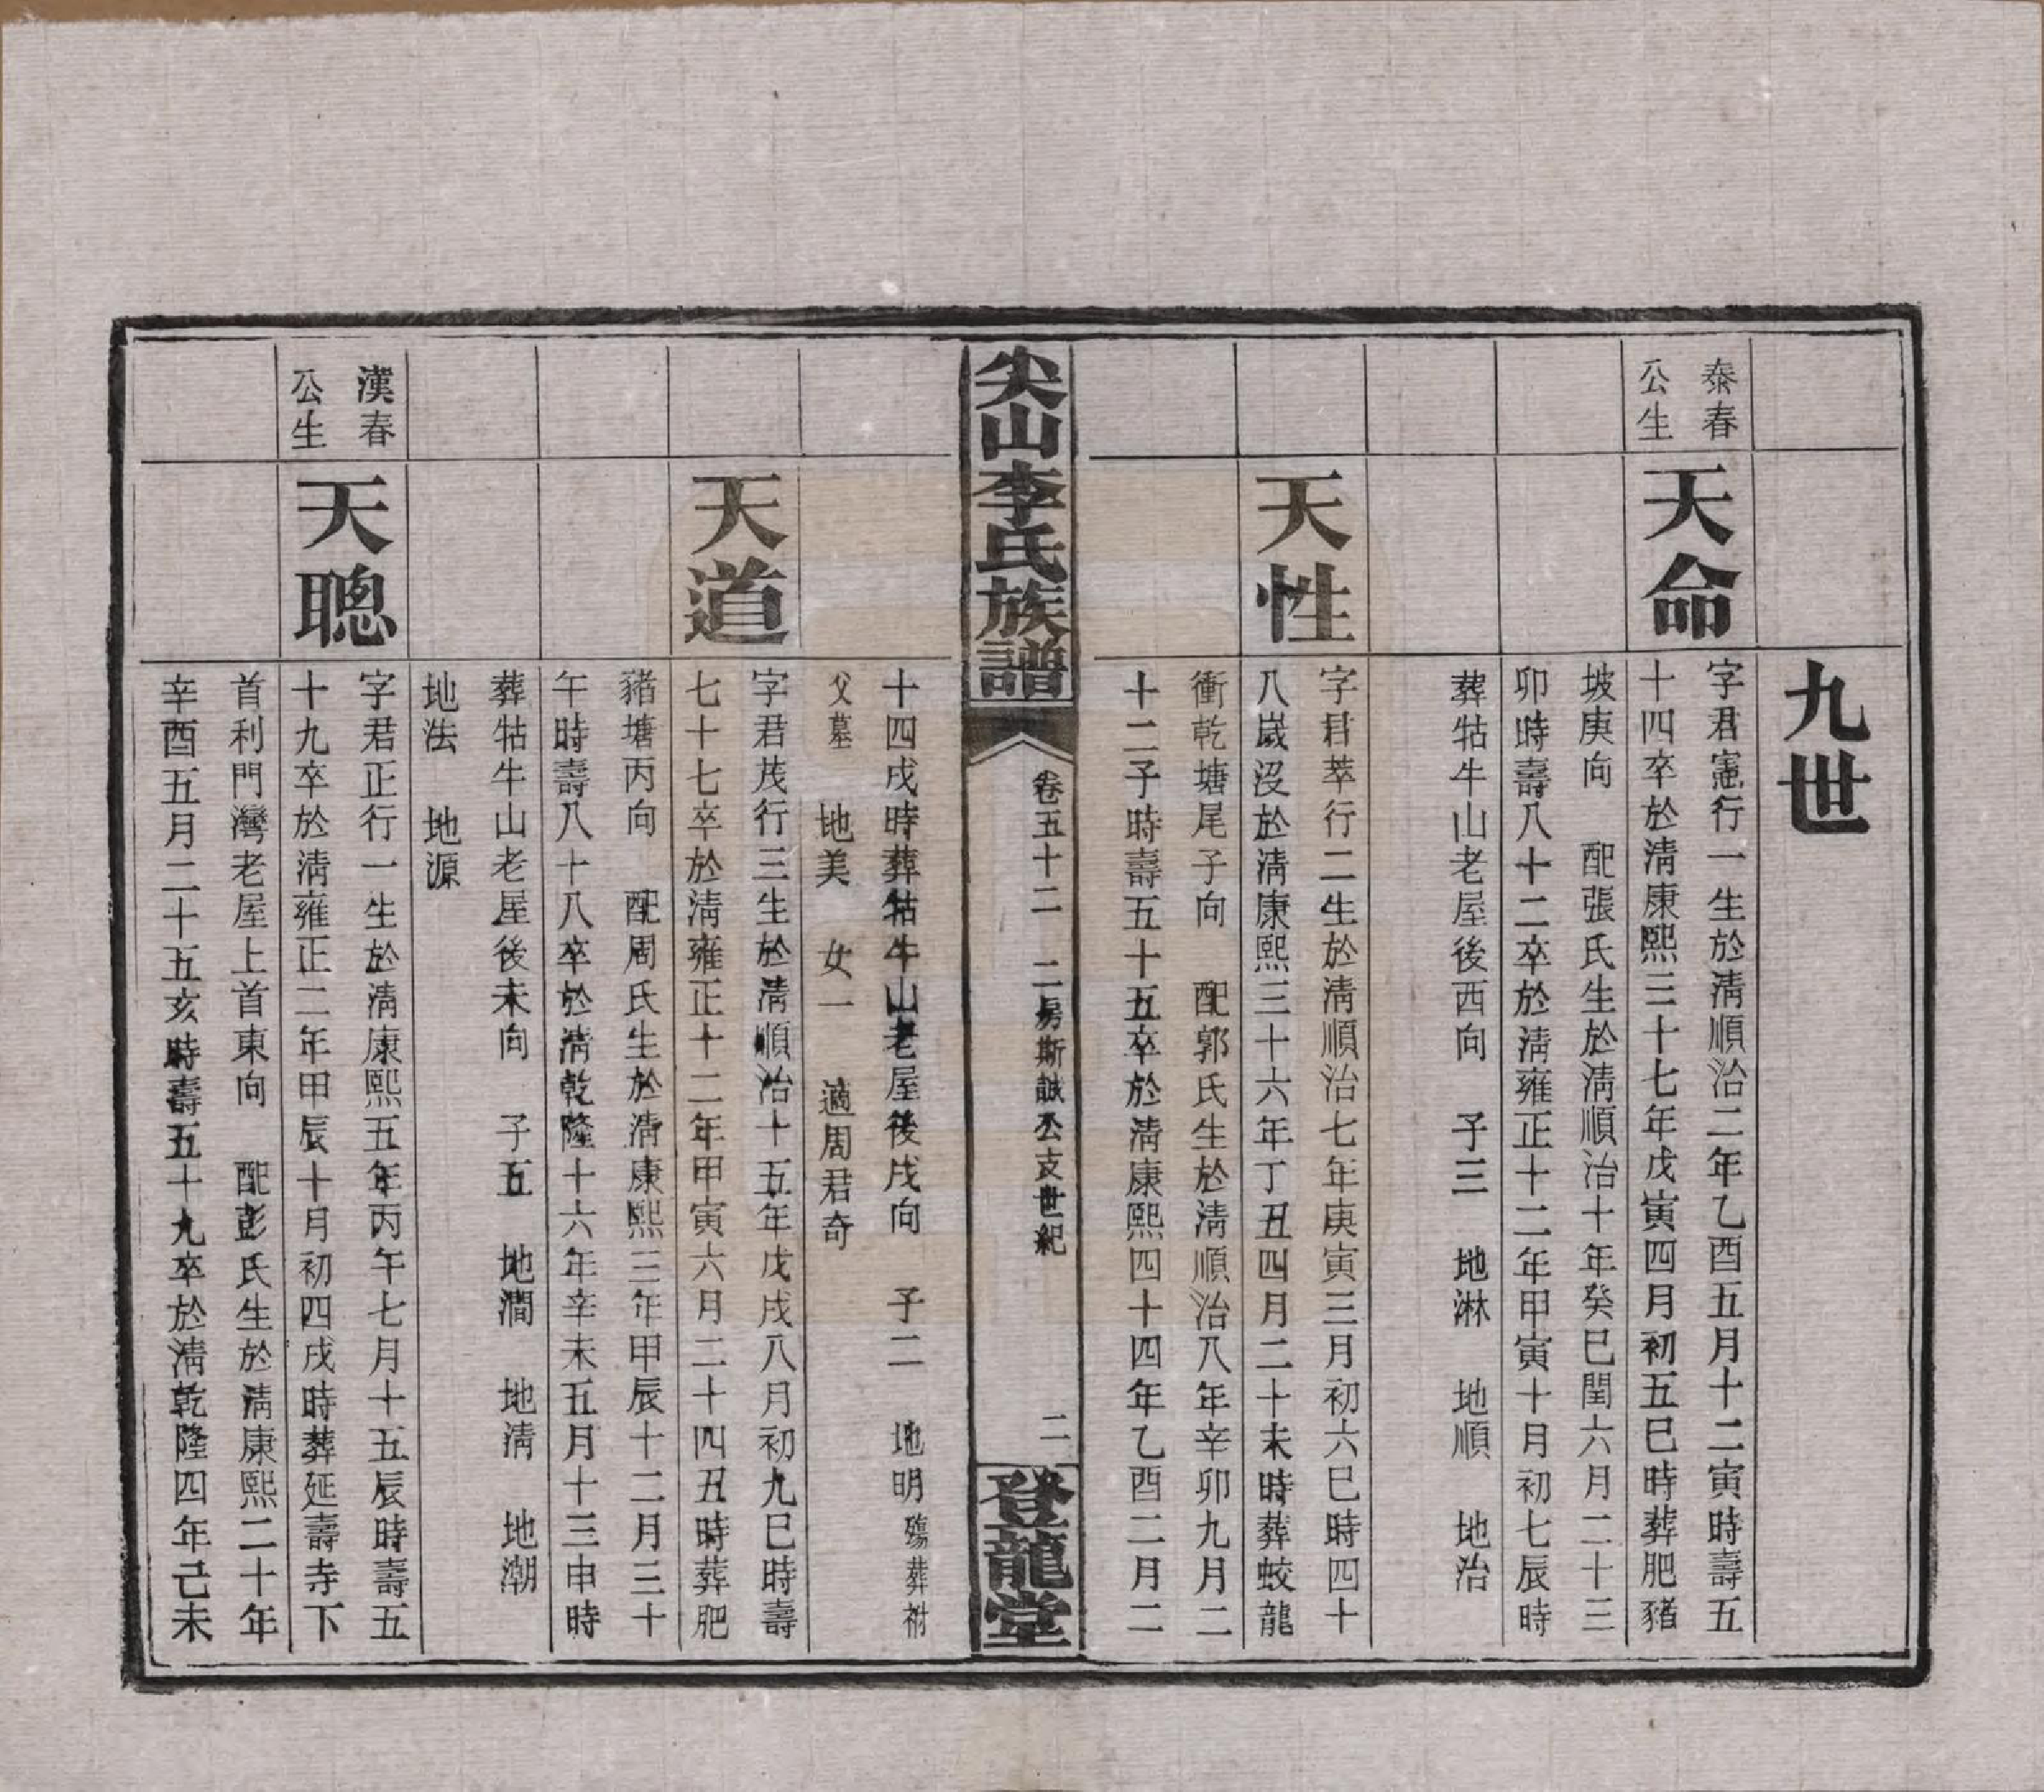 九世
泰春
公生
天命
字君憲行一生於淸順治二年乙酉五月十二寅時壽五
十四卒於淸康熙三十七年戊寅四月初五巳時葬肥豬
坡庚向　配張氏生於淸順治十年癸巳閏六月二十三
卯時壽八十二卒於淸雍正十二年甲寅十月初七辰時
葬牯牛山老屋後西向　子三　地淋　地順　地治
天性
字君萃行二生於淸順治七年庚寅三月初六巳時四十
八歲沒於淸康熙三十六年丁丑四月二十未時葬蛟龍
衝乾塘尾子向　配郭氏生於淸順治八年辛卯九月二
十二子時壽五十五卒於淸康熙四十四年乙酉二月二
尖山李氏族譜
卷五十二　二房斯誠公支世紀
二
登龍堂
十四戌時葬牯牛山老屋後戌向　子二　地明殤葬祔
父墓　地美　女一　適周君奇
天道
字君茂行三生於淸順治十五年戊戌八月初九巳時壽
七十七卒於淸雍正十二年甲寅六月二十四丑時葬肥
豬塘丙向　配周氏生於淸康熙三年甲辰十二月三十
午時壽八十八卒於淸乾隆十六年辛未五月十三申時
葬牯牛山老屋後未向　子五　地澗　地淸　地潮
地法　地源
漢春
公生
天聰
字君正行一生於淸康熙五年丙午七月十五辰時壽五
十九卒於淸雍正二年甲辰十月初四戌時葬延壽寺下
首利門灣老屋上首東向　配彭氏生於淸康熙二十年
辛酉五月二十五亥時壽五十九卒於淸乾隆四年己未